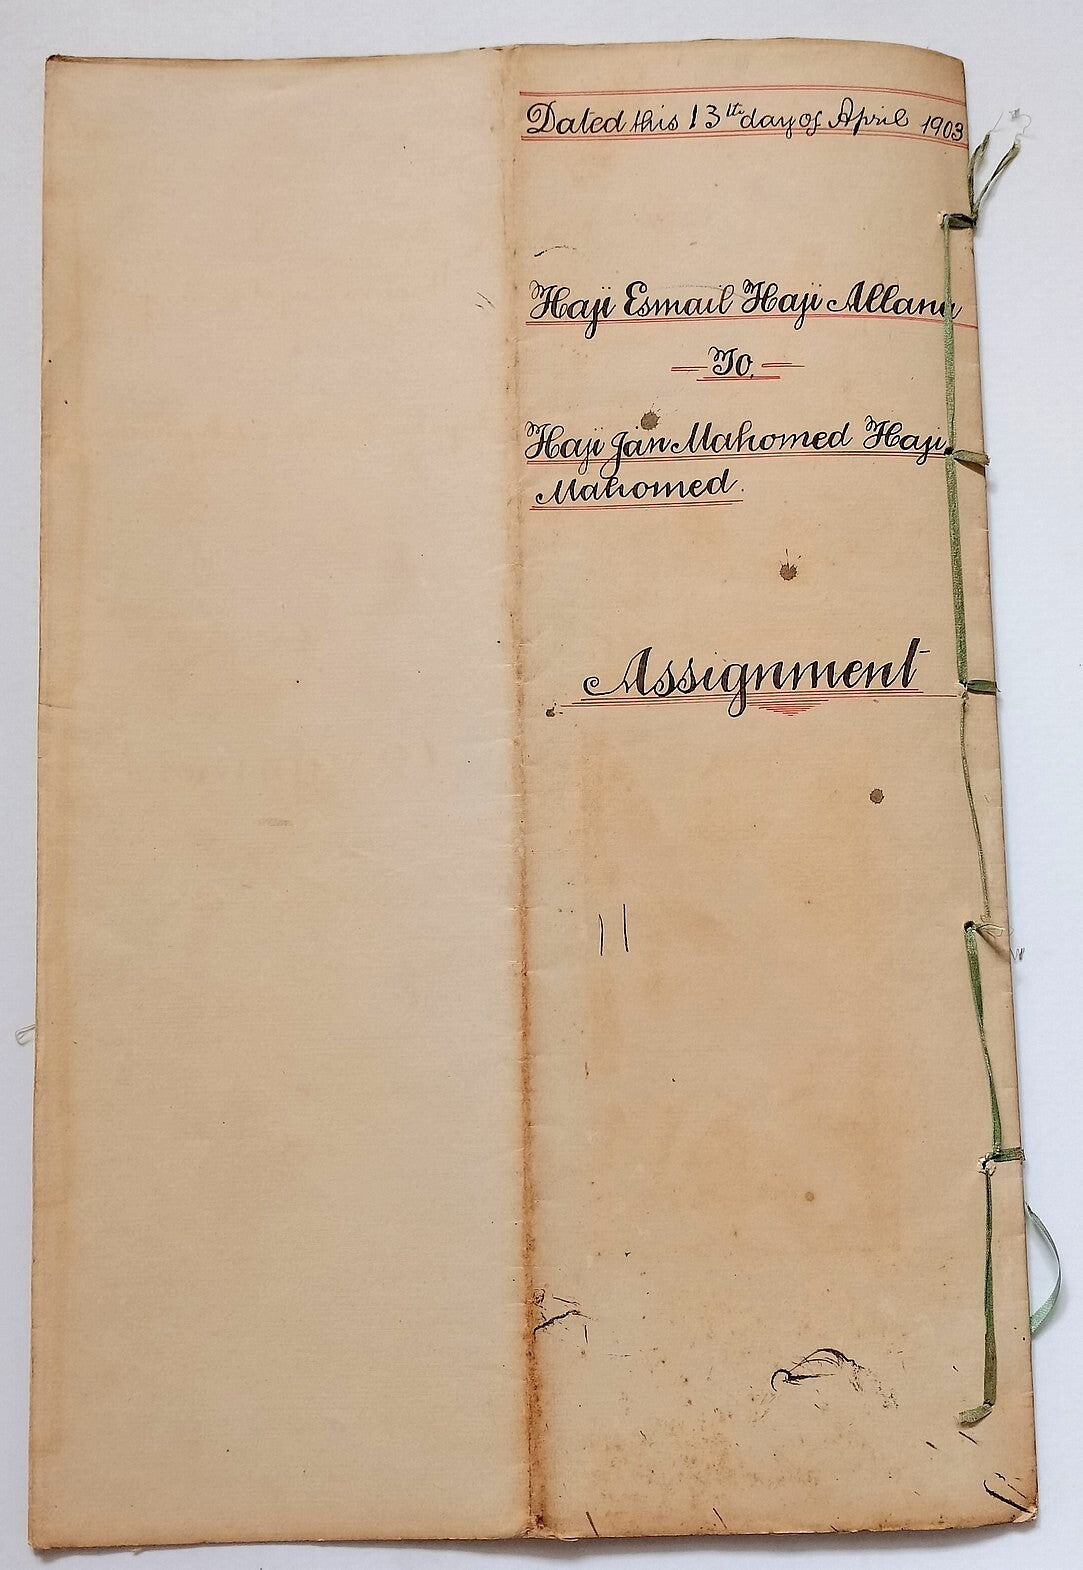 Dated this 13th day of April 1903
Haji Esmail Haji Allana
To,
Haji Jan Mahomed Haji
Mahomed.
Assignment